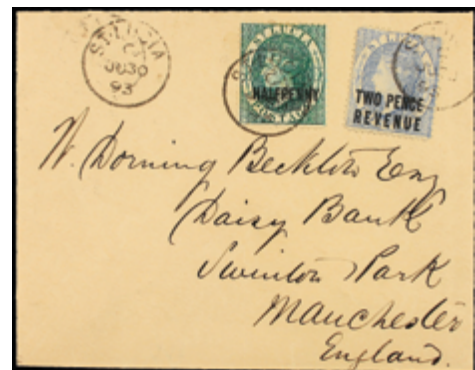 ST. LUCIA
C
JU 30
93
ST LUCIA
HALFPENNY
POSTAGE
TWO PENCE
REVENUE
W. Dorning Beckton Esq
Daisy Bank
Swinton Park
Manchester
England.